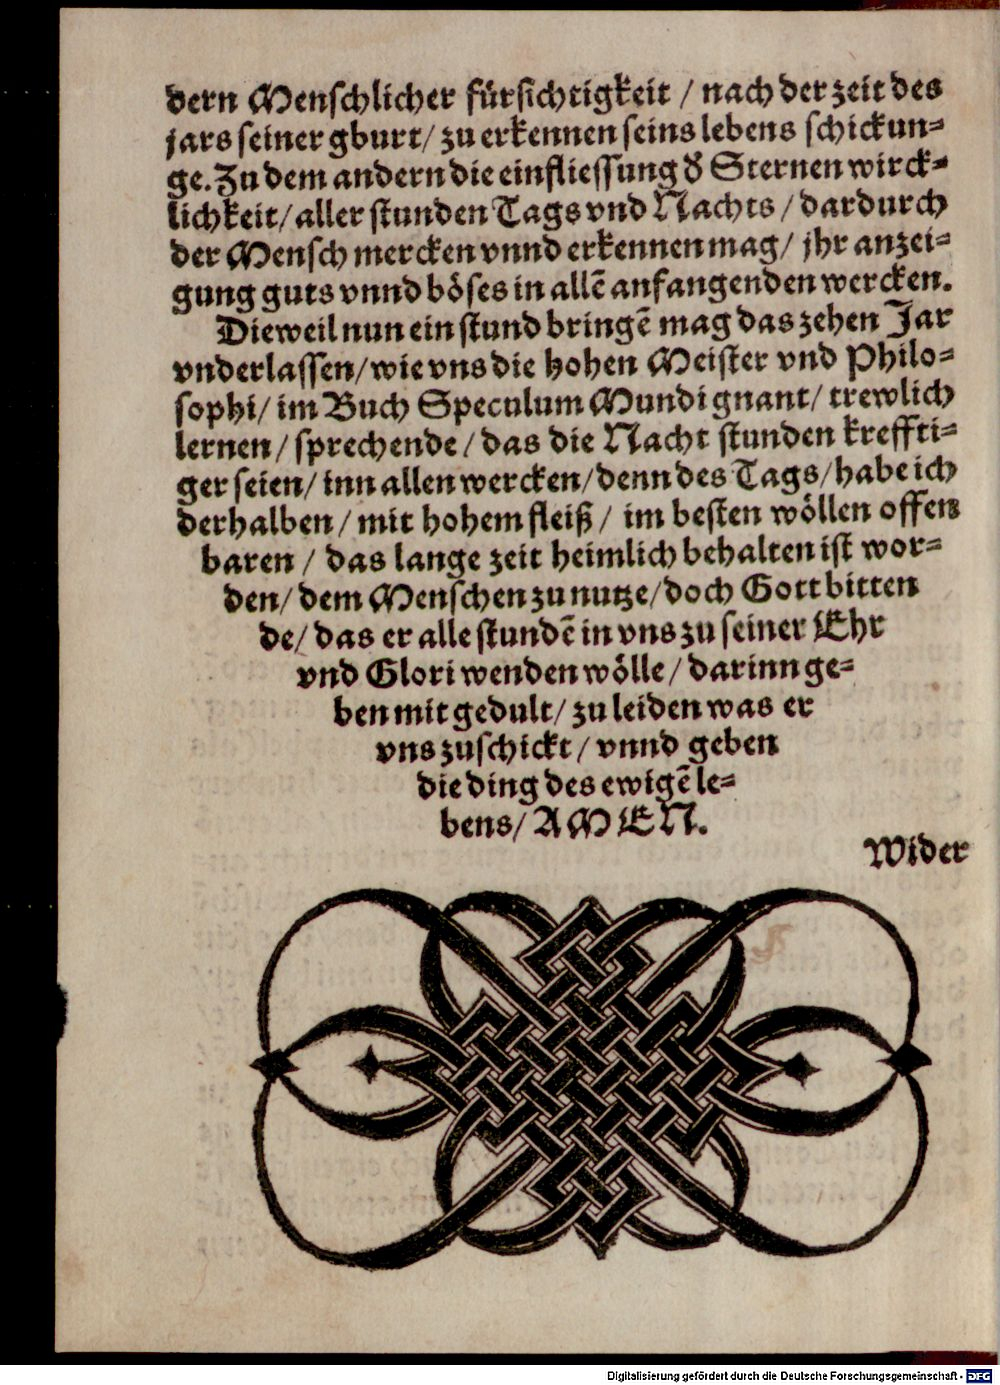 dern Menschlicher fürsichtigkeit / nach der zeit des
jars seiner gburt / zu erkennen seins lebens schickun⸗
ge. Zu dem andern die einfliessung ď Sternen wirck⸗
lichkeit / aller stunden Tags vnd Nachts / dardurch
der Mensch mercken vnnd erkennen mag / jhr anzei⸗
gung guts vnnd böses in allē anfangenden wercken.
Dieweil nun ein stund bringē mag das zehen Jar
vnderlassen / wie vns die hohen Meister vnd Philo⸗
sophi / im Buch Speculum Mundi gnant / trewlich
lernen / sprechende / das die Nacht stunden kreffti⸗
ger seien / inn allen wercken / denn des Tags / habe ich
derhalben / mit hohem fleiß / im besten wöllen offen
baren / das lange zeit heimlich behalten ist wor⸗
den / dem Menschen zu nutze / doch Gott bitten
de / das er alle stundē in vns zu seiner Ehr
vnd Glori wenden wölle / darinn ge⸗
ben mit gedult / zu leiden was er
vns zuschickt / vnnd geben
die ding des ewigē le⸗
bens / AMEN.
Wider
Digitalisierung gefördert durch die Deutsche Forschungsgemeinschaft - DFG